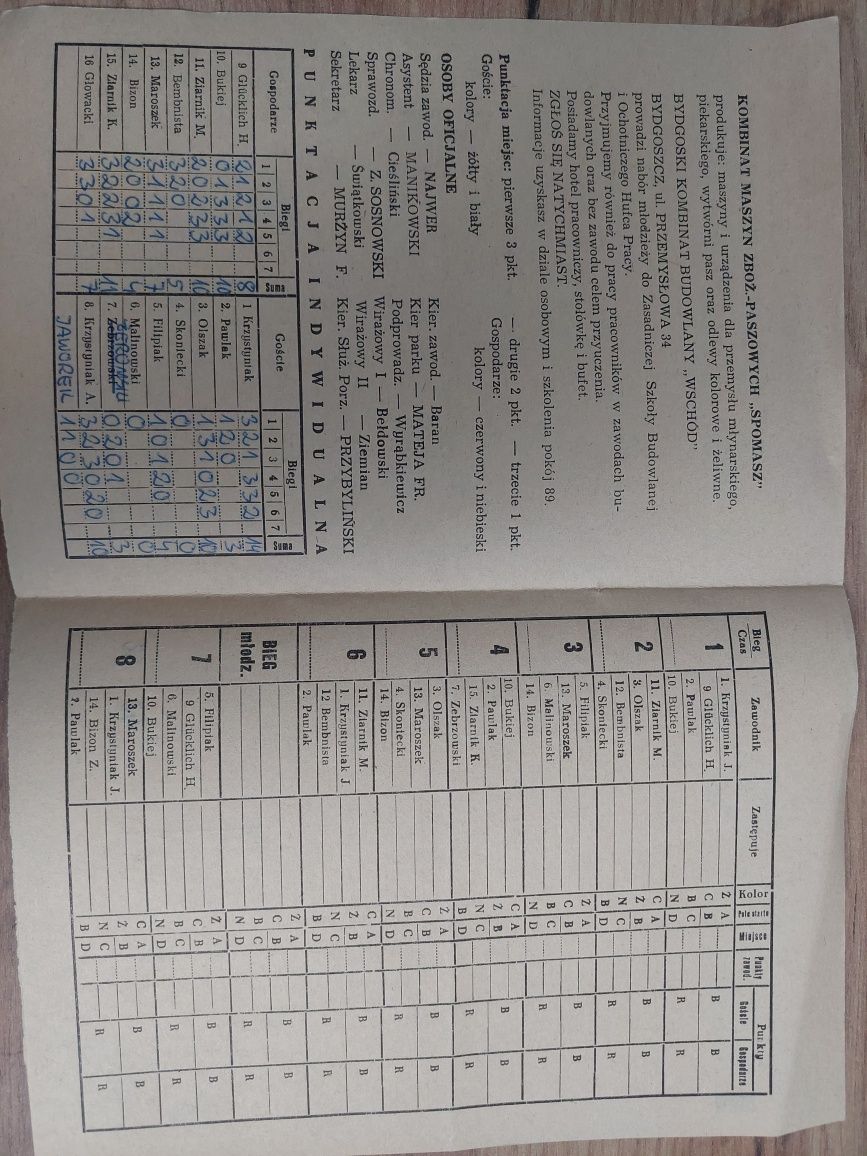 KOMBINAT MASZYN ZBOŻ.-PASZOWYCH „SPOMASZ"
produkuje: maszyny i urządzenia dla przemysłu młynarskiego,
piekarskiego, wytwórni pasz oraz odlewy kolorowe i żeliwne.
BYDGOSKI KOMBINAT BUDOWLANY „WSCHÓD"
BYDGOSZCZ, ul. PRZEMYSŁOWA 34
prowadzi nabór młodzieży do Zasadniczej Szkoły Budowlanej
i Ochotniczego Hufca Pracy.
Przyjmujemy również do pracy pracowników w zawodach bu-
dowlanych oraz bez zawodu celem przyuczenia.
Posiadamy hotel pracowniczy, stołówkę i bufet.
ZGŁOŚ SIĘ NATYCHMIAST.
Informacje uzyskasz w dziale osobowym i szkolenia pokój 89.
Punktacja miejsc: pierwsze 3 pkt. — drugie 2 pkt. — trzecie 1 pkt.
Goście: Gospodarze:
kolory — żółty i biały kolory czerwony i niebieski
OSOBY OFICJALNE
Sędzia zawod. — NAJWER Kier. zawod. — Baran
Asystent — MANIKOWSKI Kier parku — MATEJA FR.
Chronom. — Cieśliński Podprowadz. — Wyrąbkiewicz
Sprawozd. Z. SOSNOWSKI Wirażowy I — Bełdowski
Lekarz — Świątkowski Wirażowy II — Ziemian
Sekretarz — MURZYN F. Kier. Służ. Porz. — PRZYBYLIŃSKI
PUNKTACJA INDYWIDUALNA
Gospodarze Biegi Suma Goście Biegi Suma
1 2 3 4 5 6 7 1 2 3 4 5 6 7
9 Glücklich H. 2 1 2 1 2 8 1 Krzystyniak 3 2 1 3 3 2 14
10. Bukiej 0 1 3 3 3 10 2. Pawlak 1 2 0 3
11. Ziarnik M. 2 0 2 3 3 10 3. Olszak 1 3 1 0 2 3 10
12. Bembnista 3 2 0 5 4. Skoniecki 0 0
13. Maroszek 3 1 1 1 1 7 5. Filipiak 1 0 1 2 0
14. Bizon 2 0 0 2 4 6. Malinowski 0 0
15. Ziarnik K. 3 2 2 3 1 11 7. Żebrowski 0 2 0 1 3
16 Głowacki 3 3 0 1 7 8. Krzystyniak A. 3 2 3 0 2 0 10
JAWOREK 1 1 0 0
Bieg Czas Zawodnik Zastępuje Kolor Pole startu Miejsce Punkty zawod. Punkty Goście Gospodarze
1
1. Krzystyniak J. Ż A
9 Glücklich H. C B B B
2. Pawlak B C
10. Bukiej N D R R
2
11. Ziarnik M. C A
3. Olszak Ż B B B
12. Bembnista N C
4. Skoniecki B D R R
3
5. Filipiak Ż A
13. Maroszek C B B B
6 Malinowski B C
14. Bizon N D R R
4
10. Bukiej C A
2. Pawlak Ż B B B
15. Ziarnik K. N C
7. Żebrzowski B D R R
5
3. Olszak Ż A
13. Maroszek C B B B
4. Skoniecki B C
14 Bizon N D R R
6
11. Ziarnik M. C A
1. Krzystyniak J Ż B B B
12 Bembnista N C
2. Pawlak B D R R
BIEG młodz.
Ż A
C B B B
B C
N D R R
7
5. Filipiak Ż A
9 Glücklich H. C B B B
6. Malinowski B C
10. Bukiej N D R R
8
13. Maroszek C A
1. Krzystyniak J. Ż B B B
14. Bizon Z. N C
2. Pawlak B D R R